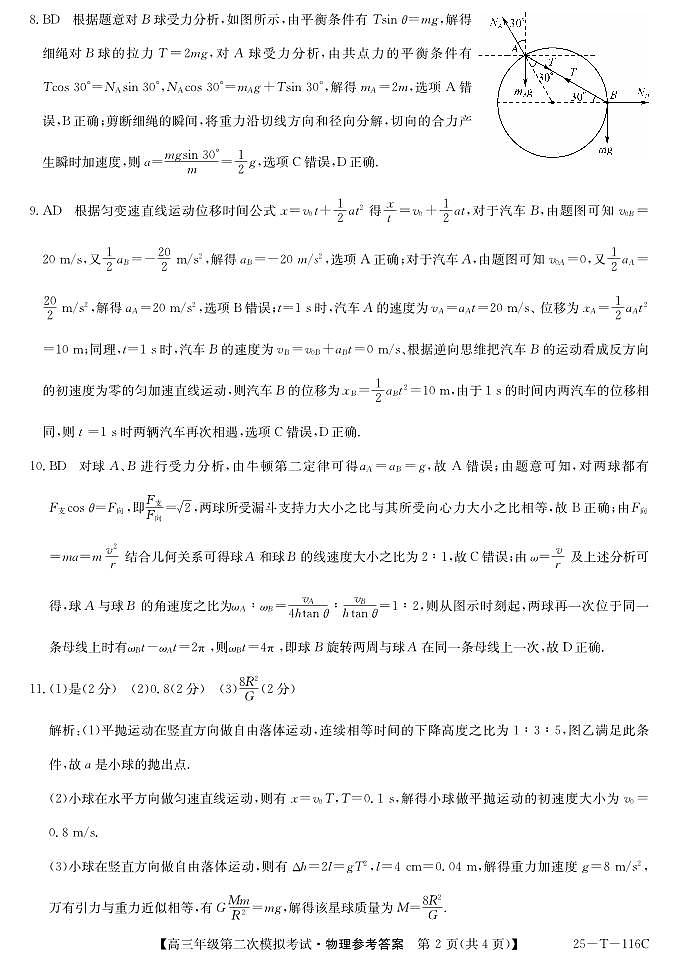 8. BD 根据题意对 B 球受力分析,如图所示,由平衡条件有 Tsin θ=mg,解得
细绳对 B 球的拉力 T=2mg,对 A 球受力分析,由共点力的平衡条件有
Tcos 30°=N_A sin 30°,N_A cos 30°=m_A g+Tsin 30°,解得 m_A=2m,选项 A 错
误,B 正确;剪断细绳的瞬间,将重力沿切线方向和径向分解,切向的合力产
生瞬时加速度,则 a=mgsin 30°/m=1/2 g,选项 C 错误,D 正确.
N_A 30° A T 30° T m_A g 30° B N_B mg
9. AD 根据匀变速直线运动位移时间公式 x=v₀t+1/2 at² 得 x/t=v₀+1/2 at,对于汽车 B,由题图可知 v_0B=
20 m/s,又 1/2 a_B=-20/2 m/s²,解得 a_B=-20 m/s²,选项 A 正确;对于汽车 A,由题图可知 v_0A=0,又 1/2 a_A=
20/2 m/s²,解得 a_A=20 m/s²,选项 B 错误;t=1 s 时,汽车 A 的速度为 v_A=a_A t=20 m/s、位移为 x_A=1/2 a_A t²
=10 m;同理,t=1 s 时,汽车 B 的速度为 v_B=v_0B+a_B t=0 m/s、根据逆向思维把汽车 B 的运动看成反方向
的初速度为零的匀加速直线运动,则汽车 B 的位移为 x_B=1/2 a_B t²=10 m,由于 1 s 的时间内两汽车的位移相
同,则 t=1 s 时两辆汽车再次相遇,选项 C 错误,D 正确.
10. BD 对球 A、B 进行受力分析,由牛顿第二定律可得 a_A=a_B=g,故 A 错误;由题意可知,对两球都有
F支cos θ=F向,即 F支/F向=√2,两球所受漏斗支持力大小之比与其所受向心力大小之比相等,故 B 正确;由 F向
=ma=m v²/r 结合几何关系可得球 A 和球 B 的线速度大小之比为 2∶1,故 C 错误;由 ω=v/r 及上述分析可
得,球 A 与球 B 的角速度之比为 ω_A∶ω_B=v_A/(4htan θ)∶v_B/(htan θ)=1∶2,则从图示时刻起,两球再一次位于同一
条母线上时有 ω_B t-ω_A t=2π,则 ω_B t=4π,即球 B 旋转两周与球 A 在同一条母线上一次,故 D 正确.
11. (1)是(2 分) (2)0.8(2 分) (3)8R²/G(2 分)
解析:(1)平抛运动在竖直方向做自由落体运动,连续相等时间的下降高度之比为 1∶3∶5,图乙满足此条
件,故 a 是小球的抛出点.
(2)小球在水平方向做匀速直线运动,则有 x=v₀T,T=0.1 s,解得小球做平抛运动的初速度大小为 v₀=
0.8 m/s.
(3)小球在竖直方向做自由落体运动,则有 Δh=2l=gT²,l=4 cm=0.04 m,解得重力加速度 g=8 m/s²,
万有引力与重力近似相等,有 G Mm/R²=mg,解得该星球质量为 M=8R²/G.
【高三年级第二次模拟考试·物理参考答案 第 2 页(共 4 页)】 25-T-116C